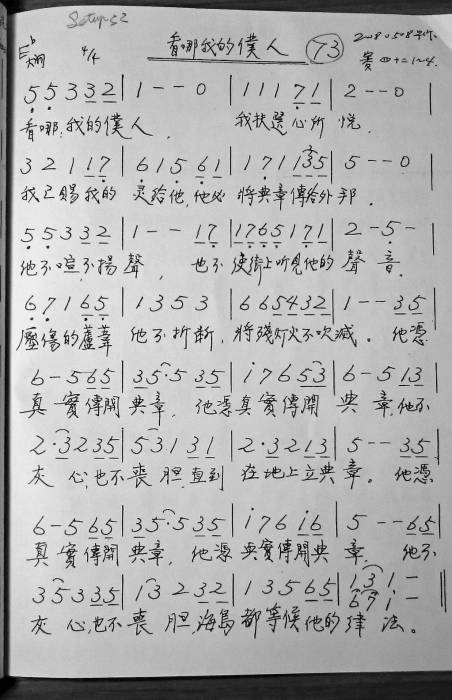 Setup 52
看哪我的僕人 73 2008.05.08
E♭大調 4/4 賽四十二 1~4.
5 5 3 3 2 | 1 - - 0 | 1 1 1 7 1 | 2 - - 0 |
看哪,我的僕人, 我扶選心所悅.
3 2 1 1 7 | 6 1 5 6 1 | 1 7 1 1 3 5 | 5 - - 0
我已賜我的灵給他,他必將典章傳給外邦.
5 5 3 3 2 | 1 - - 1 7 | 1 7 6 5 1 7 1 | 2 - 5 -
他不喧不揚聲, 也不使街上听見他的聲音.
6 7 1 6 5 | 1 3 5 3 | 6 6 5 4 3 2 | 1 - - 3 5 |
壓傷的蘆葦他不折断, 將殘灯火不吹滅。他憑
6 - 5 6 5 | 3 5 · 5 3 5 | i 7 6 5 3 | 6 - 5 1 3 |
真實傳開典章, 他憑真實傳開典章,他不
2 · 3 2 3 5 | 5 3 1 3 1 | 2 · 3 2 1 3 | 5 - - 3 5 |
灰心也不喪胆,直到在地上立典章。他憑
6 - 5 6 5 | 3 5 · 5 3 5 | i 7 6 i 6 | 5 - - 6 5 |
真實傳開典章, 他憑真實傳開典章, 他不
3 5 3 3 5 | 1 3 2 3 2 | 1 3 5 6 5 | i 3 i - ||
6 7 i -
灰心,也不喪胆,海島都等候他的律法。